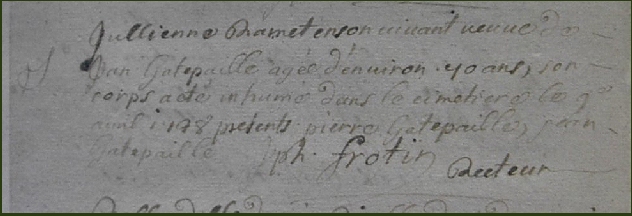 Jullienne Ramet en son vivant veuve de
Jan Gatepaille agée d'environ 40 ans, son
corps a eté inhumé dans le cimetiere le 9e
avril 1728 presents pierre Gatepaille, jean
Gatepaille Jph. frotin
Recteur